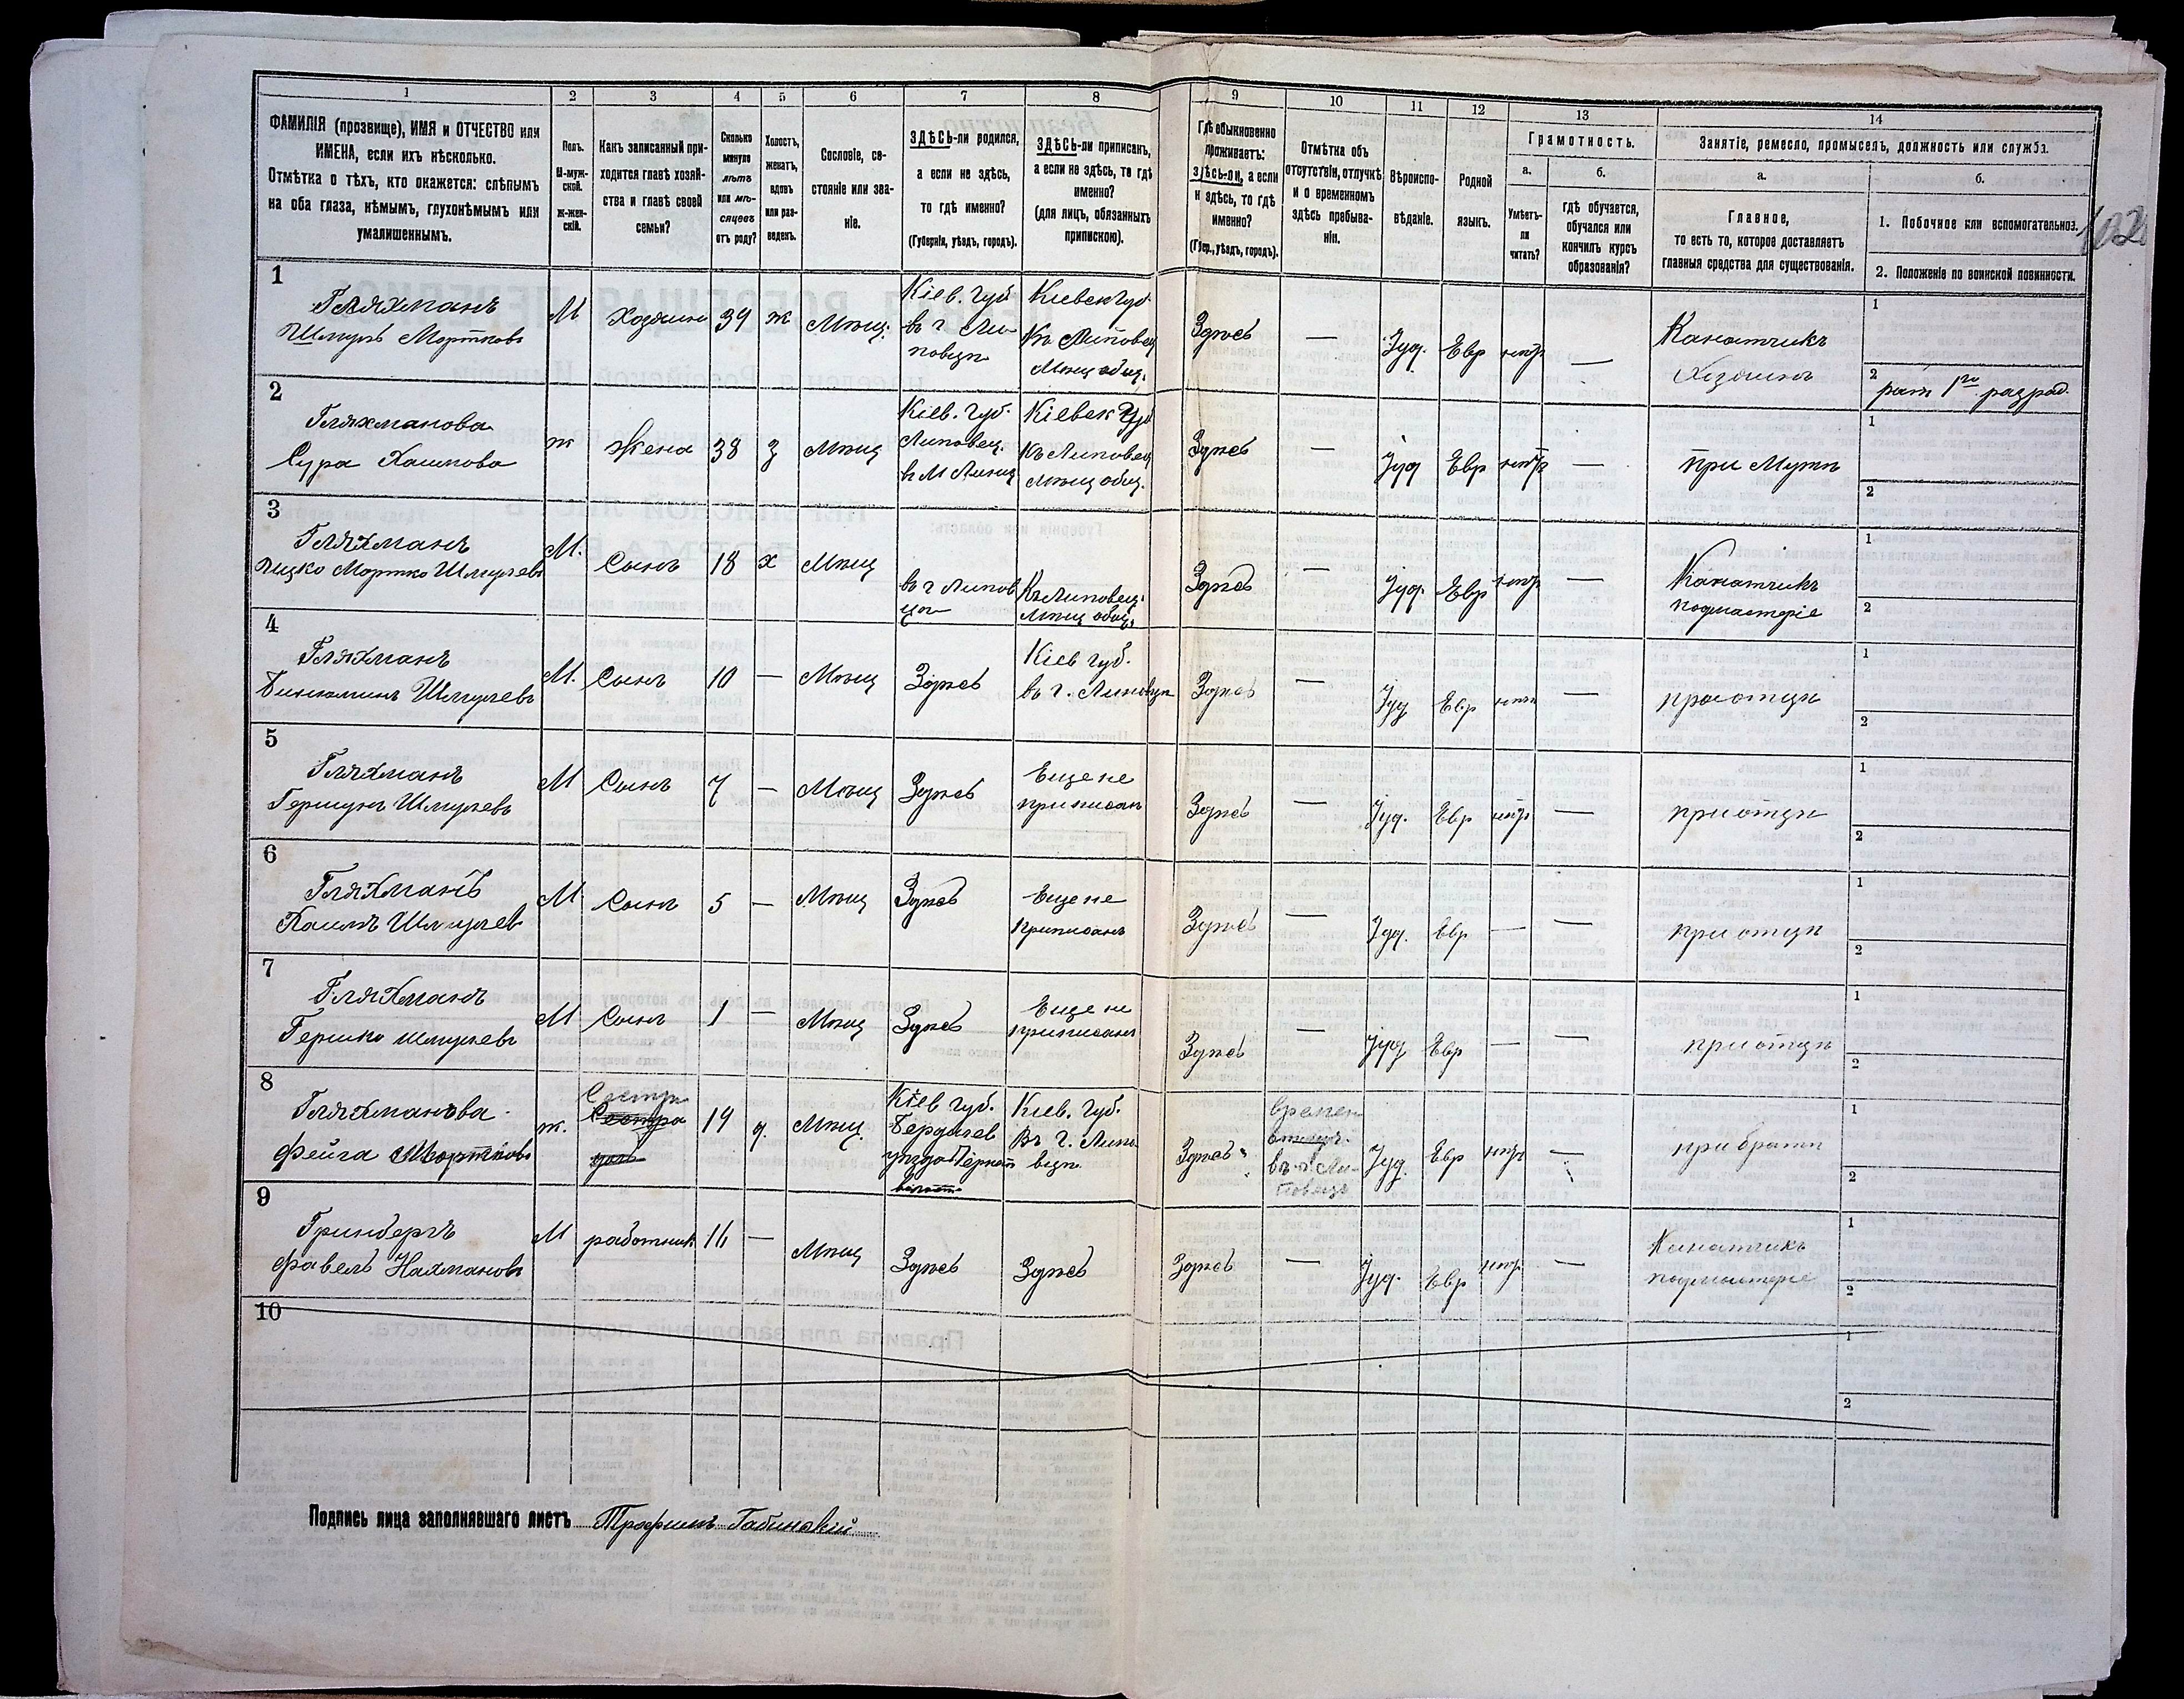 1 2 3 4 5 6 7 8 9 10 11 12 13 14
ФАМИЛІЯ (прозвище), ИМЯ и ОТЧЕСТВО или
ИМЕНА, если ихъ нѣсколько.
Отмѣтка о тѣхъ, кто окажется: слѣпымъ
на оба глаза, нѣмымъ, глухонѣмымъ или
умалишеннымъ.
Полъ.
М-муж-
ской.
ж-жен-
скій.
Какъ записанный при-
ходится главѣ хозяй-
ства и главѣ своей
семьи?
Сколько
минуло
лѣтъ
или мѣ-
сяцевъ
отъ роду?
Холостъ,
женатъ,
вдовъ
или раз-
веденъ.
Сословіе, со-
стояніе или зва-
ніе.
ЗДѢСЬ-ли родился,
а если не здѣсь,
то гдѣ именно?
(Губернія, уѣздъ, городъ).
ЗДѢСЬ-ли приписанъ,
а если не здѣсь, то гдѣ
именно?
(для лицъ, обязанныхъ
припискою).
Гдѣ обыкновенно
проживаетъ:
здѣсь-ли, а если
н здѣсь, то гдѣ
именно?
(Губер., уѣздъ, городъ).
Отмѣтка объ
отсутствіи, отлучкѣ
и о временномъ
здѣсь пребыва-
ніи.
Вѣроиспо-
вѣданіе.
Родной
языкъ.
Грамотность.
а.
Умѣетъ-
ли
читать?
б.
гдѣ обучается,
обучался или
кончилъ курсъ
образованія?
Занятіе, ремесло, промыселъ, должность или служба.
а.
Главное,
то есть то, которое доставляетъ
главныя средства для существованія.
б.
1. Побочное или вспомогательное.
2. Положеніе по воинской повинности.
1
Гляхманъ
Шмуль Мортковъ
М Хозяинъ 39 ж Мѣщ.
Кіев. Губ
въ г Ли-
повцѣ
Кіевск Губ
Къ Липовец
Мѣщ общ.
Здѣсь — Іуд. Евр нѣтъ —
Канатчикъ
Хозяинъ
1
2
рат 1го разряд.
2
Гляхманова
Сура Хаимова
ж Жена 38 з Мѣщ
Кіев. Губ.
Липовец.
в М Линц
Кіевск Губ
Къ Липовец
Мѣщ общ.
Здѣсь — Іуд Евр нѣтъ —
при Мужѣ
1
2
3
Гляхманъ
Ицко Мортко Шмулевъ
М. Сынъ 18 х Мѣщ
въ г Липов
цѣ
Къ Липовец.
Мѣщ общ.
Здѣсь — Іуд. Евр нѣтъ —
Канатчикъ
подмастеріе
1
2
4
Гляхманъ
Биньаминъ Шмулевъ
М. Сынъ 10 — Мѣщ Здѣсь
Кіев губ.
въ г. Липовцѣ
Здѣсь — Іуд Евр нѣтъ —
при отцѣ
1
2
5
Гляхманъ
Гершунъ Шмулевъ
М Сынъ 7 — Мѣщ Здѣсь
Еще не
приписан
Здѣсь — Іуд. Евр нѣтъ —
при отцѣ
1
2
6
Гляхманъ
Хаимъ Шмулев
М Сынъ 5 — Мѣщ Здѣсь
Еще не
приписанъ
Здѣсь — Іуд. Евр — —
при отцѣ
1
2
7
Гляхманъ
Гершко Шмулевъ
М Сынъ 1 — Мѣщ Здѣсь
Еще не
приписанъ
Здѣсь — Іуд Евр — —
при отцѣ
1
2
8
Гляхманова
Фейга Мортковъ
ж.
Сестра
Сестра
19 д. Мѣщ.
Кіев губ.
Бердичев
уѣзда
Кіев. Губ.
Въ г. Липо
вцѣ
Здѣсь
времен
отлуч.
въ г. Ли-
повецъ
Іуд. Евр нѣтъ —
при братѣ
1
2
9
Гринбергъ
Фавель Нахмановъ
М работник 16 — Мѣщ Здѣсь Здѣсь
Здѣсь — Іуд. Евр нѣтъ —
Канатчикъ
подмастерiе
1
2
10
1
2
Подпись лица заполнявшаго листъ Трофимъ Габинскій